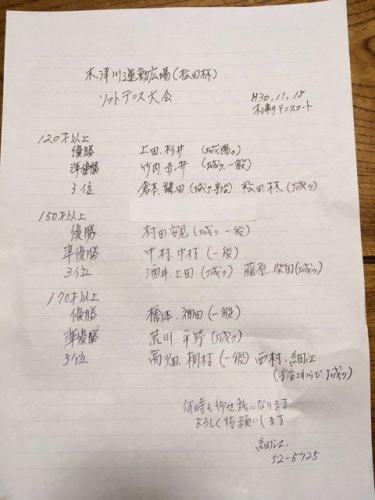 木津川運動広場(松田杯)
ソフトテニス大会
H30.11.18
木津川テニスコート
120才以上
優勝 上田.杉井 (城陽ク)
準優勝 竹内 (城ク.一般)
3位 倉本 鎌田 (城ク.宇治) 松田.林 (城ク)
150才以上
優勝 村田 安見 (城ク.一般)
準優勝 中村.中村 (一般)
3位 酒井.上田 (城ク) 藤原.柴田 (城ク)
170才以上
優勝 橋本.池田 (一般)
準優勝 荒川 平野 (城ク)
3位 西畑.桐村 (一般) 西村.細江
城ク)
何時も御世話になります.
よろしく御願いします
細江.
52-5725